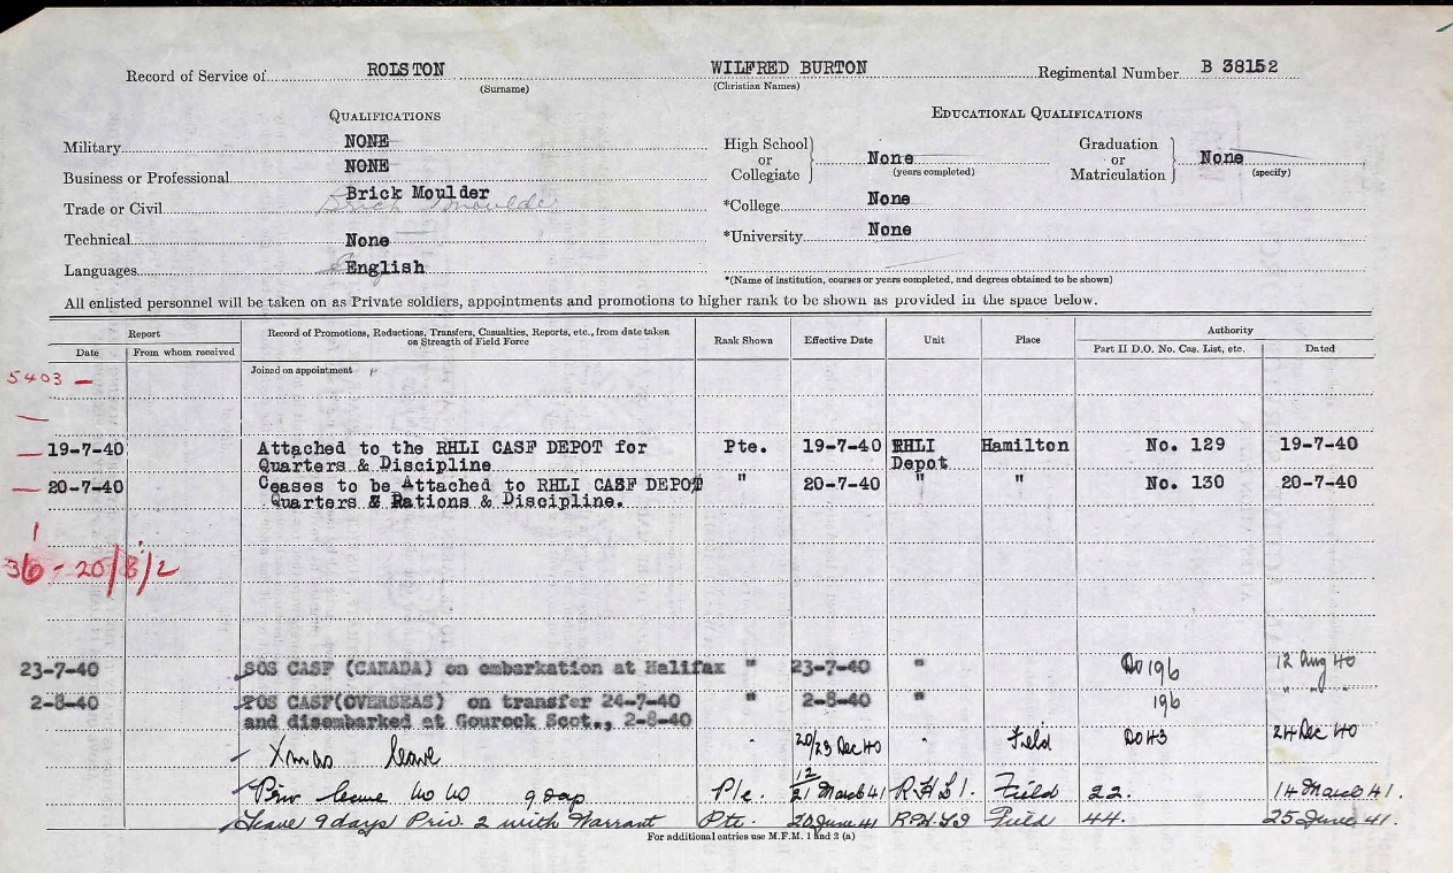 Record of Service of ROLSTON WILFRED BURTON Regimental Number B 38152
(Surname) (Christian Names)
QUALIFICATIONS
Military NONE
Business or Professional NONE
Trade or Civil Brick Moulder
Brick Moulder
Technical None
Languages English
EDUCATIONAL QUALIFICATIONS
High School or Collegiate None (years completed)
Graduation or Matriculation None (specify)
*College None
*University None
*(Name of institution, courses or years completed, and degrees obtained to be shown)
All enlisted personnel will be taken on as Private soldiers, appointments and promotions to higher rank to be shown as provided in the space below.
Report
Date From whom received
Record of Promotions, Reductions, Transfers, Casualties, Reports, etc., from date taken
on Strength of Field Force
Rank Shown Effective Date Unit Place
Authority
Part II D.O. No. Cas. List, etc. Dated
5403 —
Joined on appointment
19-7-40 Attached to the RHLI CASF DEPOT for Pte. 19-7-40 RHLI Hamilton No. 129 19-7-40
Quarters & Discipline Depot
20-7-40 Ceases to be Attached to RHLI CASF DEPOT " 20-7-40 " " No. 130 20-7-40
Quarters & Rations & Discipline.
36 - 20/8/2
23-7-40 SOS CASF (CANADA) on embarkation at Halifax " 23-7-40 " DO 196 12 Aug 40
2-8-40 TOS CASF(OVERSEAS) on transfer 24-7-40 " 2-8-40 " 196 " " "
and disembarked at Gourock Scot., 2-8-40
Xmas leave " 20/23 Dec 40 " Field DO 43 24 Dec 40
Priv leave 12/21 March 41 Pte. R.H.L.I. Field 22. 14 March 41.
Leave 9 days Priv. 2 with Warrant Pte. 20 June 41 R.H.L.I Field 44. 25 June 41.
For additional entries use M.F.M. 1 and 2 (a)